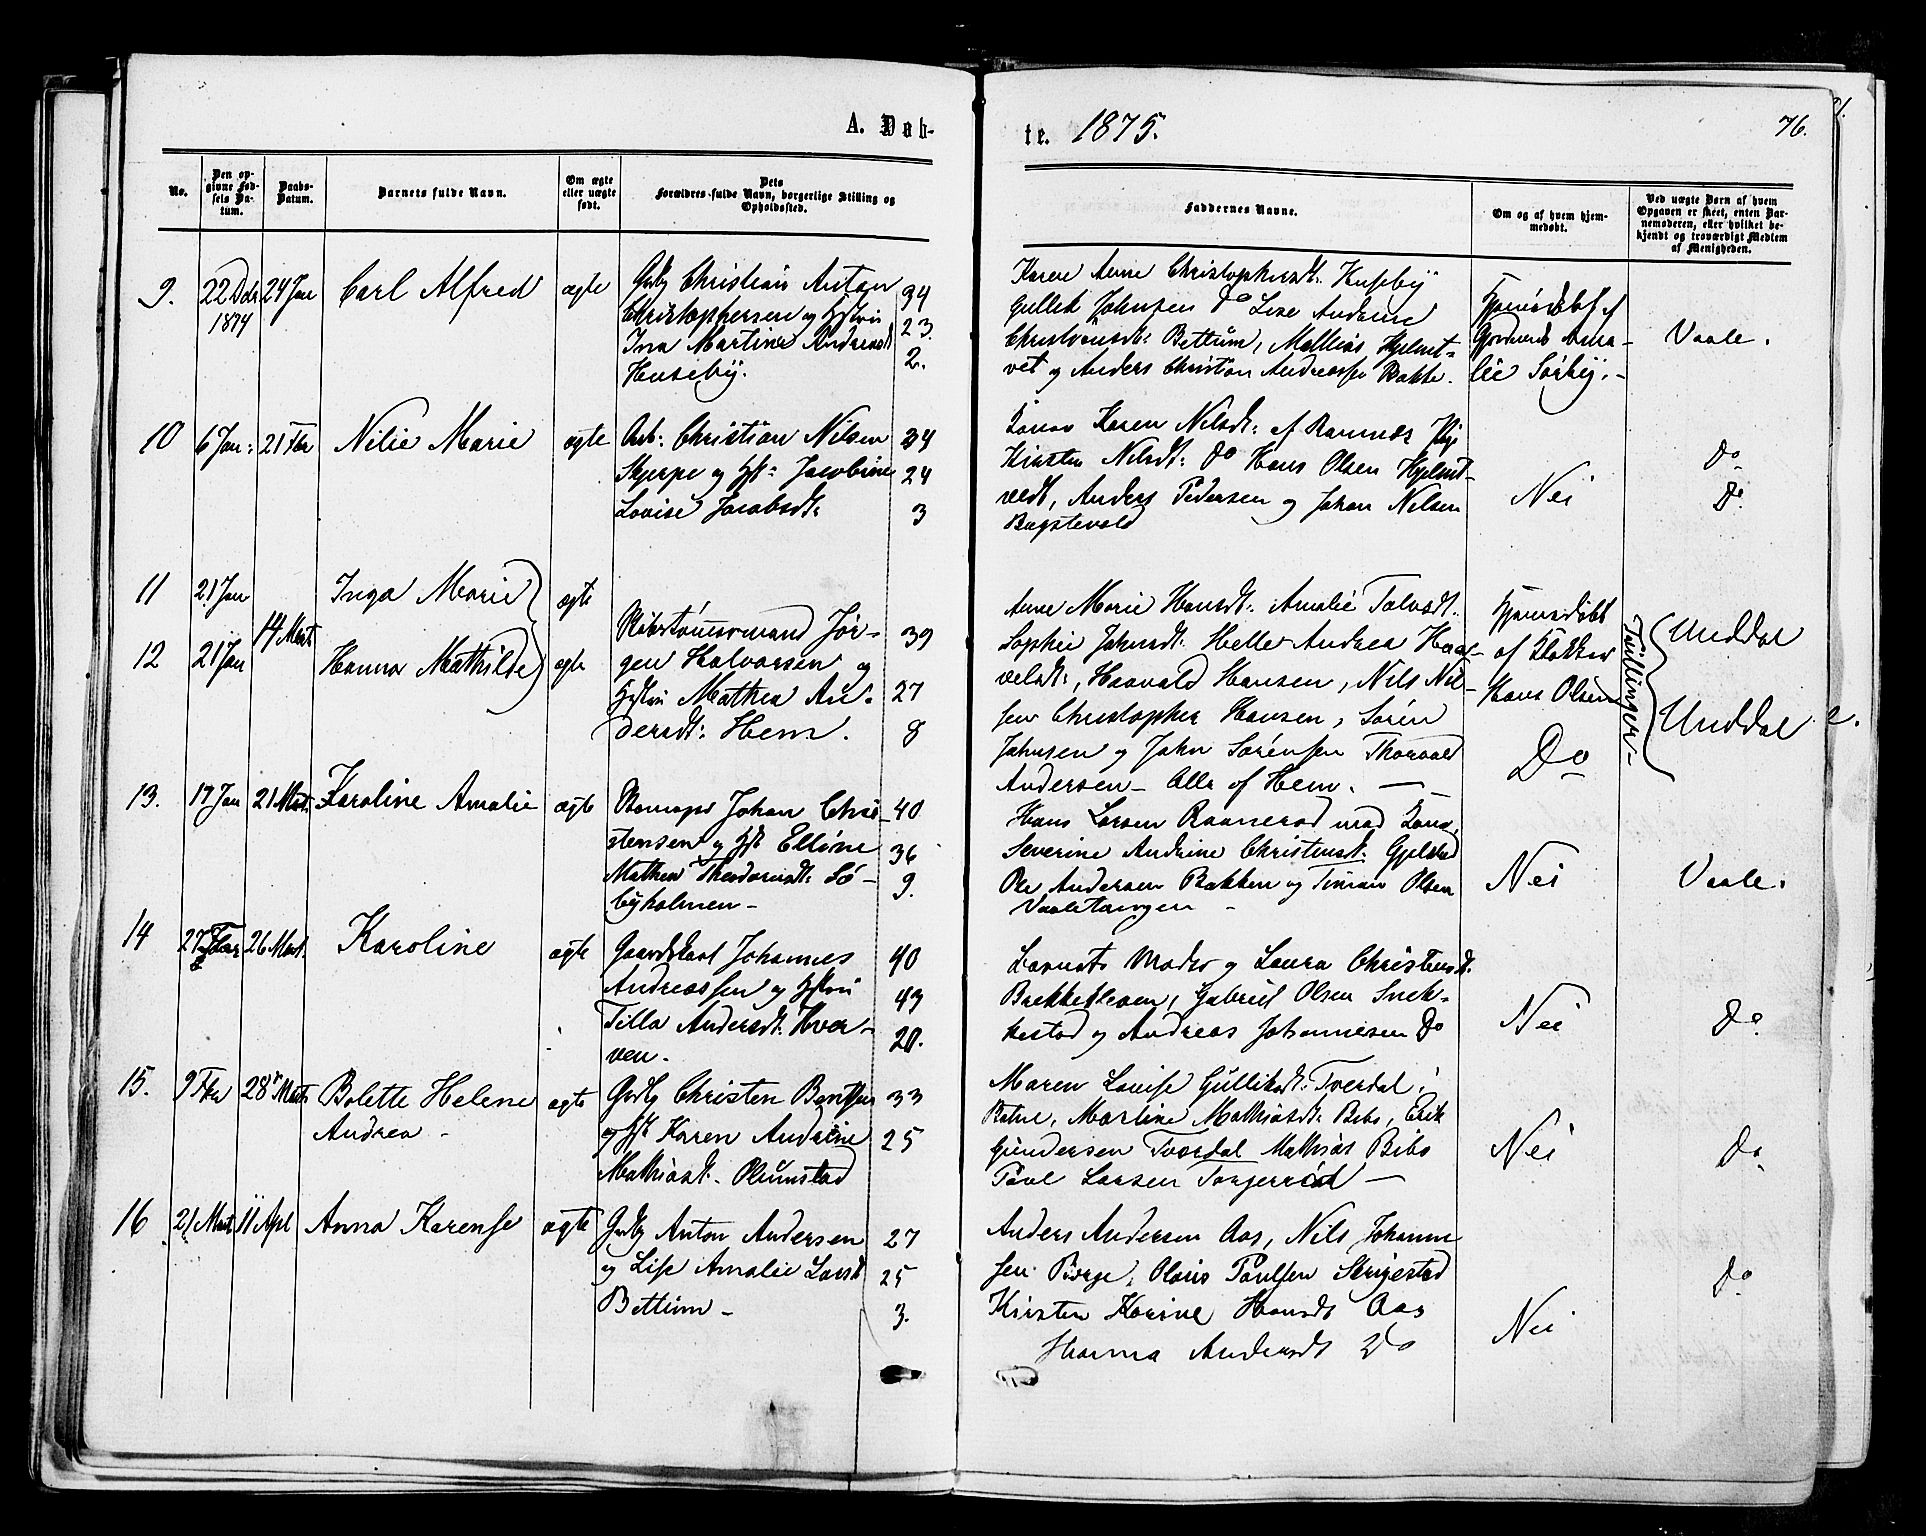 A. Døb-
te. 1875.
76.
No.
Den op-
givne Fød-
sels Da-
tum.
Daabs-
Datum.
Barnets fulde Navn.
Om ægte
eller uægte
født.
Dets
Forældres fulde Navn, borgerlige Stilling og
Opholdssted.
Faddernes Navne.
Om og af hvem hjem-
medøbt.
Ved uægte Børn af hvem
Opgaven er skeet, enten Bar-
nemoderen, eller hvilket be-
kjendt og troværdigt Medlem
af Menigheden.
9.
22 Dcbr
1874
24 Jan
Carl Alfred
ægte
Gbrg Christian Anton
Christophersen og Hstru
Ina Martine Andreasdt
Huseby.
34
23.
2.
Karen Anne Christophersdt: Huseby
Gullik Johnsen Do Lise Andrine
Christensdt: Bettum, Mathias Hjelmt-
vet og Anders Christian Andreassen Bakke.
Hjemmedøbt af
Gjordmoder Ama-
lie Sørby.-
Vaale.
10
6 Jan:
21 Fbr
Nilie Marie
ægte
Arb: Christian Nilsen
Skjeppe og Hst: Jacobine
Lovise Jacobsdt:
34
24
3
Kone Karen Nilsdt: af Ramnæs
Kirsten Nilsdt: Do Hans Olsen Hjelmt-
vedt, Anders Pedersen og Johan Nilsen
Bugstevold
Nei
Do
Do
11
21 Jan
Inga Marie
ægte
12
21 Jan
14 Marts
Hanna Mathilde
ægte
Jør-
gen Halvorsen og
Hstru Mathea An-
dersdt: Hem.
39
27
8
Anne Marie Hansdt: Amalie
Sophie Johnsdt: Helle Andrea Haa-
velsdt:, Haavald Hansen, Nils Nil-
sen Christopher Hansen, Søren
Johnsen og John Sørensen Thorvald
Andersen - Alle af Hem. -
Hjemmedøbt
af Klokker
Hans Olsen
Do
Tvillinger-
Unddal
Unddal 2.
13.
17 Jan
21 Marts
Karoline Amalie
ægte
Johan Chri-
stensen og Hst Elline
Mathea Theodorsdt: Sø-
byholmen -
40
36
9.
Hans Larsen Raanerød med Kone,
Severine Andrine Christensdt: Gjelstad
Ole Andersen Bakken og Timan Olsen
Vaaletangen -
Nei
Vaale.
14
27 Fbr
26 Mart.
Karoline
ægte
Gaardskarl Johannes
Andreassen og Hstru
Tilla Andersdt: Hver-
ven.
40
43
20.
Barnets Moder og Laura Christensdt.
Brekkekleven, Gabriel Olsen Snek-
kestad og Andreas Johannesen Do
Nei
Do
15.
9 Fbr
28 Marts
Bolette Helene
Andrea -
ægte
Gbrg Christen Bentsen
og Hst Karen Andrine
Mathiasdt. Plumstad
33
25
Maren Lovise Gulliksdt: Tverdal,
Martine Mathiasdt: Bibo, Erik
Gundersen Tverdal Mathias Bibo
Povl Larsen Torgerrød -
Nei
Do
16
21 Marts
11 Apl
Anna Karense
ægte
Gbrg Anton Andersen
og Lise Amalie Larsdt
Bettum -
27
25
3.
Anders Andersen Aas, Nils Johanne-
sen Borge, Olaus Paulsen Skrigestad
Kirsten Karine Hansdt Aas
Hanna Andersdt Do
Nei
Do